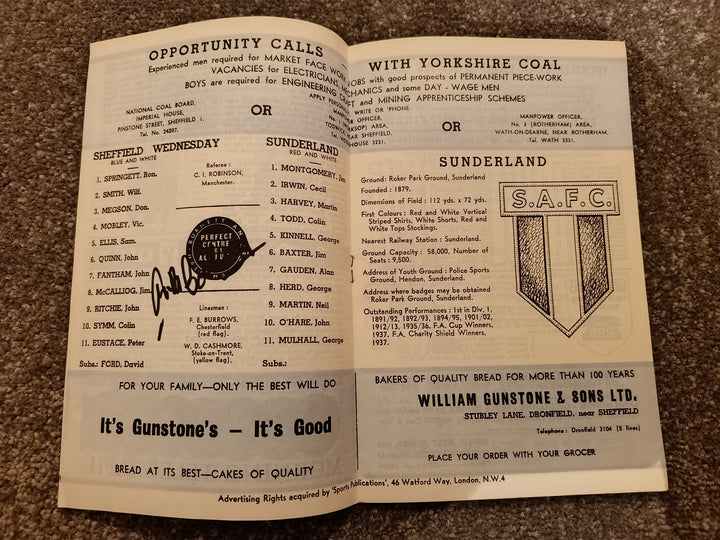 OPPORTUNITY CALLS
Experienced men required for MARKET FACE WORK
VACANCIES for ELECTRICIANS,
BOYS are required for ENGINEERING
APPLY
NATIONAL COAL BOARD,
IMPERIAL HOUSE,
PINSTONE STREET, SHEFFIELD 1.
Tel. No. 24207.
OR
SHEFFIELD WEDNESDAY
BLUE AND WHITE
1. SPRINGETT, Ron.
2. SMITH, Wilf.
3. MEGSON, Don.
4. MOBLEY, Vic.
5. ELLIS, Sam.
6. QUINN, John
7. FANTHAM, John
8. McCALLIOG, Jim
9. RITCHIE, John
10. SYMM, Colin
11. EUSTACE, Peter
Subs.: FORD, David
Referee :
C. I. ROBINSON,
Manchester.
PERFECT
CENTRE
Linesmen :
F. E. BURROWS,
Chesterfield
(red flag).
W. D. CASHMORE,
Stoke-on-Trent,
(yellow flag).
SUNDERLAND
RED AND WHITE
1. MONTGOMERY, Jim
2. IRWIN, Cecil
3. HARVEY, Martin
4. TODD, Colin
5. KINNELL, George
6. BAXTER, Jim
7. GAUDEN, Alan
8. HERD, George
9. MARTIN, Neil
10. O'HARE, John
11. MULHALL, George
Subs.:
FOR YOUR FAMILY—ONLY THE BEST WILL DO
It's Gunstone's – It's Good
BREAD AT ITS BEST—CAKES OF QUALITY
WITH YORKSHIRE COAL
JOBS with good prospects of PERMANENT PIECE-WORK
MECHANICS and some DAY - WAGE MEN
and MINING APPRENTICESHIP SCHEMES
WRITE OR 'PHONE
OR
MANPOWER OFFICER,
No. 3 (ROTHERHAM) AREA,
WATH-ON-DEARNE, NEAR ROTHERHAM.
Tel. WATH 3331.
SUNDERLAND
Ground: Roker Park Ground, Sunderland
Founded : 1879.
Dimensions of Field : 112 yds. x 72 yds.
First Colours : Red and White Vertical
Striped Shirts, White Shorts, Red and
White Tops Stockings.
Nearest Railway Station : Sunderland.
Ground Capacity : 58,000, Number of
Seats : 9,500.
Address of Youth Ground : Police Sports
Ground, Hendon, Sunderland.
Address where badges may be obtained
Roker Park Ground, Sunderland.
Outstanding Performances : 1st in Div. 1,
1891/92, 1892/93, 1894/95, 1901/02,
1912/13, 1935/36. F.A. Cup Winners,
1937. F.A. Charity Shield Winners,
1937.
S.A.F.C.
BAKERS OF QUALITY BREAD FOR MORE THAN 100 YEARS
WILLIAM GUNSTONE & SONS LTD.
STUBLEY LANE, DRONFIELD, near SHEFFIELD
Telephone : Dronfield 3104 (5 lines)
PLACE YOUR ORDER WITH YOUR GROCER
Advertising Rights acquired by 'Sports Publications', 46 Watford Way, London, N.W.4